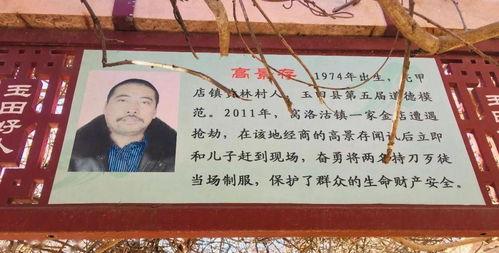 玉田好人
高景存 1974年出生，
店镇 林村人，玉田县第五届道德模
范。2011年，窝洛沽镇一家金店遭遇
抢劫，在该地经商的高景存闻讯后立即
和儿子赶到现场，奋勇将两名持刀歹徒
当场制服，保护了群众的生命财产安全。